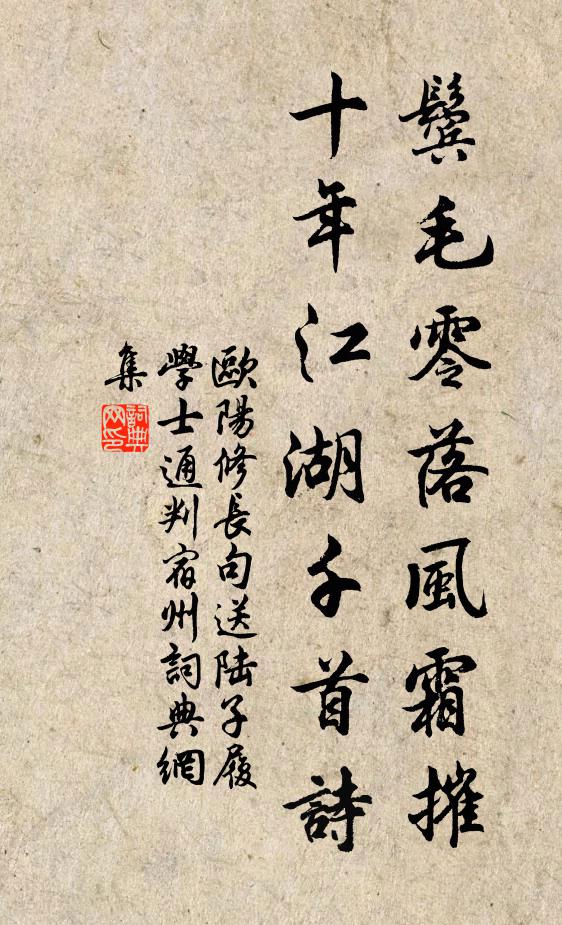 鬢毛零落風霜摧
十年江湖千首詩
歐陽修長句送陸子履
學士通判宿州詞典網
集
詞典网印